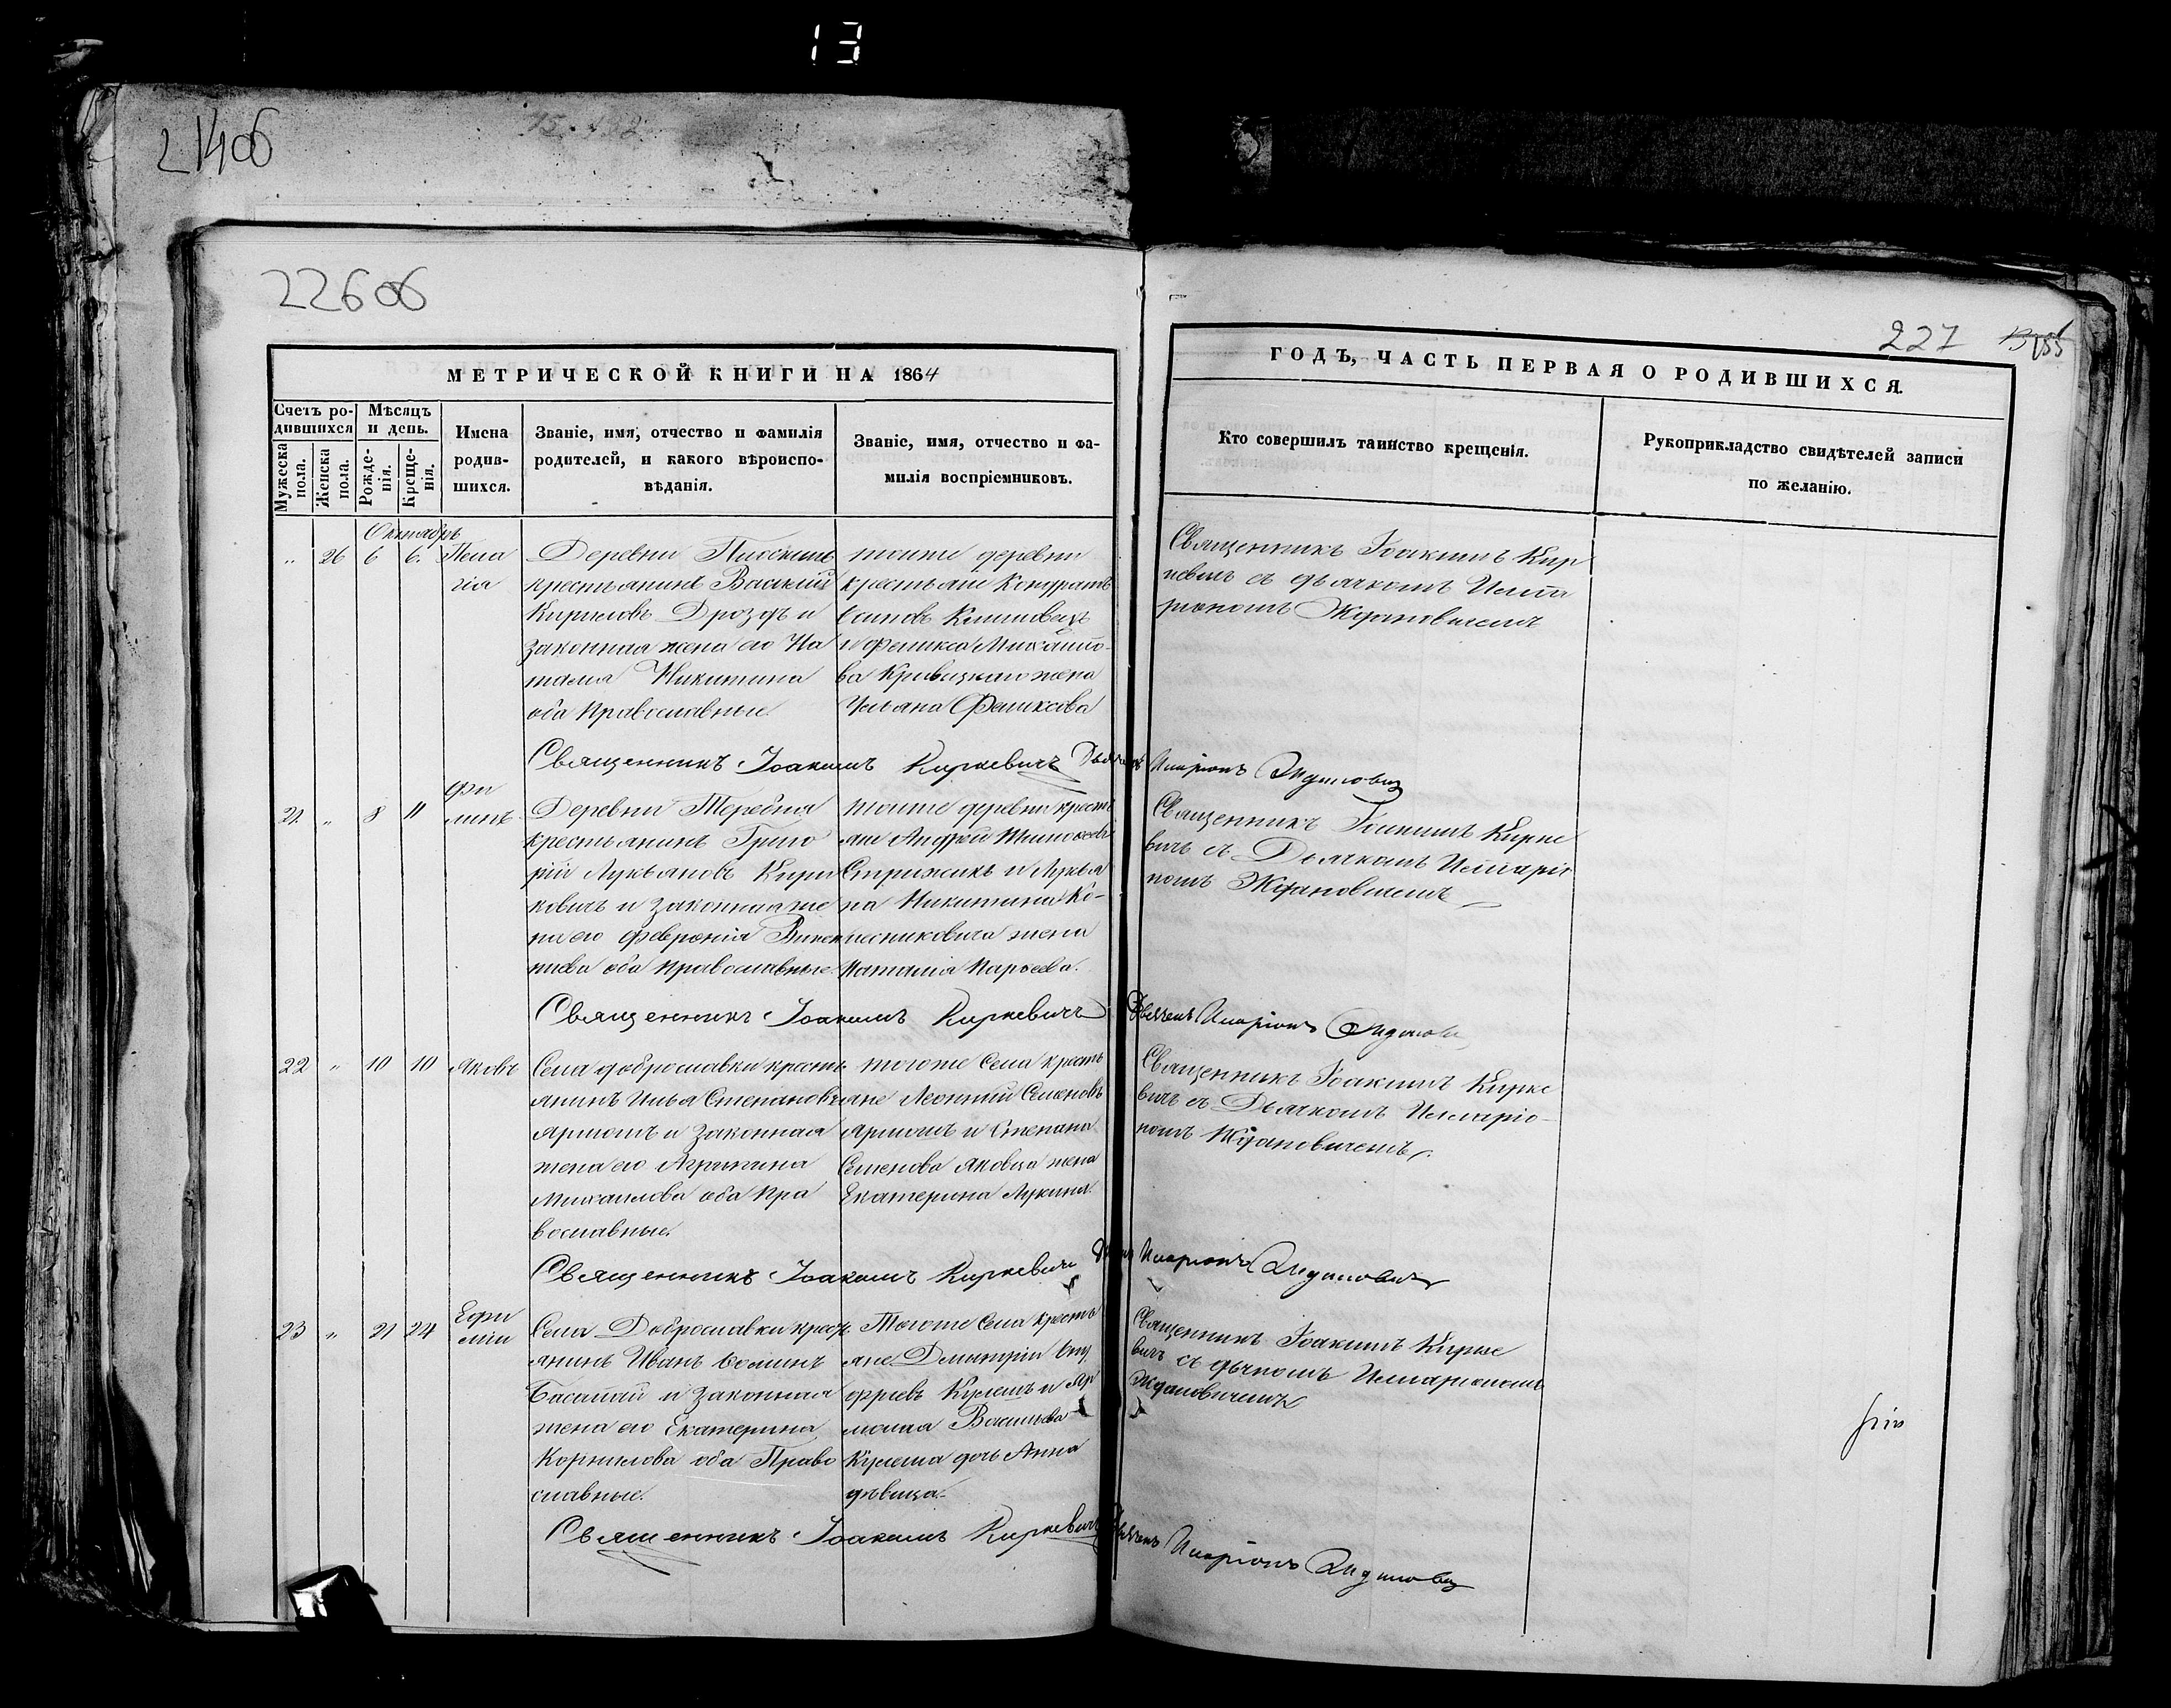 13
21406
22606
227
МЕТРИЧЕСКОЙ КНИГИ НА 1864
ГОДЪ, ЧАСТЬ ПЕРВАЯ О РОДИВШИХСЯ.
Счетъ ро-
дившихся
Мужеска
пола.
Женска
пола.
Мѣсяцъ
и день.
Рожде-
нія.
Креще-
нія.
Имена
родив-
шихся.
Званіе, имя, отчество и фамилія
родителей, и какого вѣроиспо-
вѣданія.
Званіе, имя, отчество и фа-
милія воспріемниковъ.
Кто совершилъ таинство крещенія.
Рукоприкладство свидѣтелей записи
по желанію.
Октябрь
„ 26 6 6. Пела
гія
Деревни
крестьянинъ Василий
Кириловъ Дроздъ и
законная жена его На
талія Никитина
оба православные.
тойже деревни
крестьяне Кондратъ
Осиповъ Климовецъ
и Феликса Михайло-
ва Кривицкаго жена
Ульяна Феликсова
Священникъ Іоакимъ Кир
кевичъ съ дьячкомъ Илла
ріономъ Ждановичемъ
Священникъ Іоакимъ Киркевичъ Дьячекъ Иларіонъ Ждановичъ
21. „ 8 11 Фи
липъ
Деревни Теребня
крестьянинъ Григо
рій Лукьяновъ Кири
ковичъ и законная же
на его Феврония
оба православные.
тойже деревни кресть
яне Андрей Тимофеевъ
Стрижикъ и Лукья
на Никитина Ко-
лесниковича жена
Наталія
Священникъ Іоакимъ Кирке
вичъ съ Дьячкомъ Илларіо
номъ Ждановичемъ
Священникъ Іоакимъ Киркевичъ Дьячекъ Иларіонъ Жданови
22 „ 10 10 Яковъ
Села Доброславки кресть
янинъ Илья Степановъ
Ярмошъ и законная
жена его Агрипина
Михаилова оба пра
вославные.
тогоже Села кресть
яне Леонтій Семеновъ
Ярмошъ и Степана
Семенова Яковца жена
Екатерина Лукина.
Священникъ Іоакимъ Кирке
вичъ съ Дьячкомъ Илларіо-
номъ Ждановичемъ.
Священникъ Іоакимъ Киркевичъ Иларіонъ Ждановичъ
23 „ 21 24 Ефи
мій
Села Доброславки крест
янинъ Иванъ Фоминъ
Басалай и законная
жена его Екатерина
Корнилова оба Право
славные.
Тогоже Села кресть
яне Дмитрій Ону
фріевъ Кулешъ и Яр
молая Васильева
Кулеша дочь Анна
дѣвица.
Священникъ Іоакимъ Кирке
вичъ съ дьячкомъ Иларіономъ
Ждановичемъ
Священникъ Іоакимъ Киркевичъ Дьячекъ Иларіонъ Ждановичъ